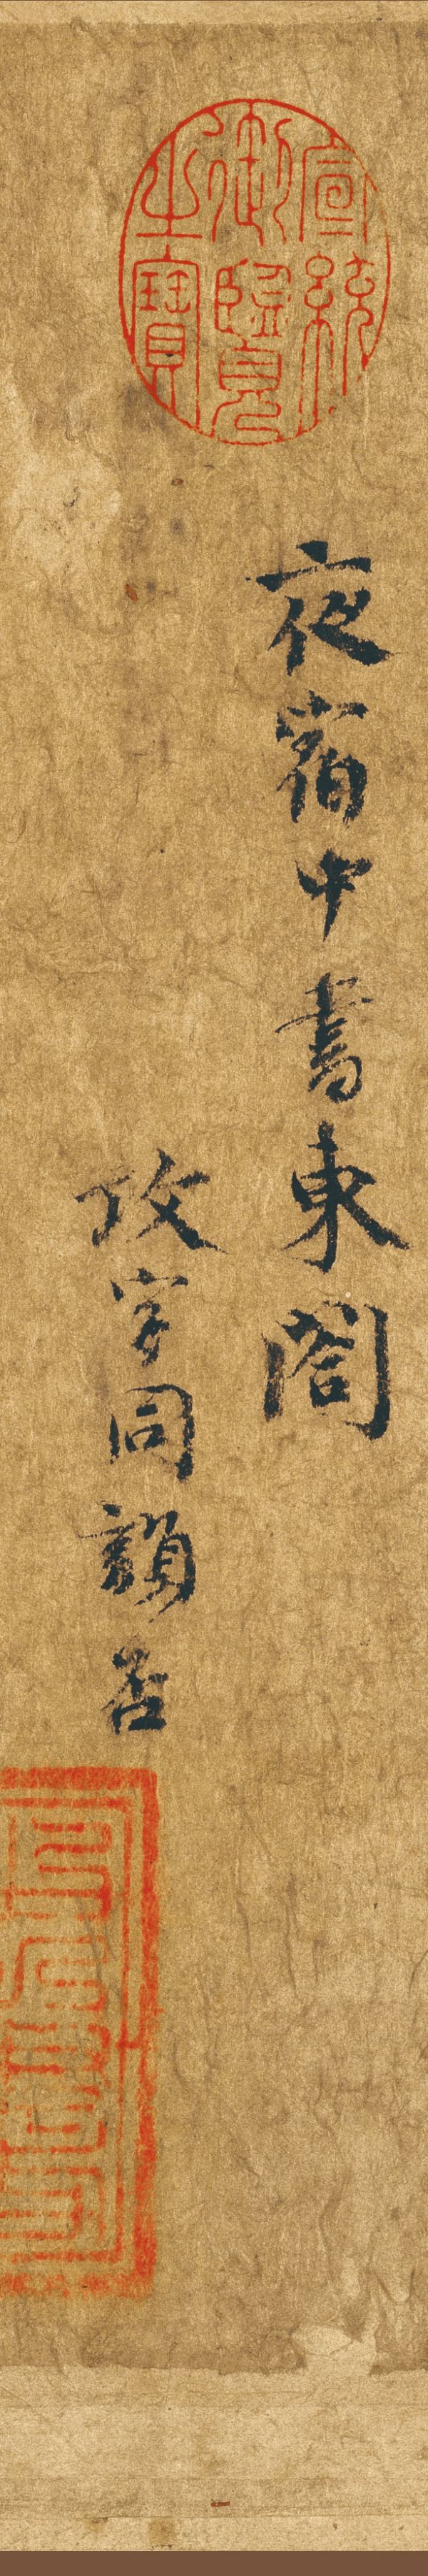 宣統
御覽
之寶
夜宿中書東閤
攻字同韻否